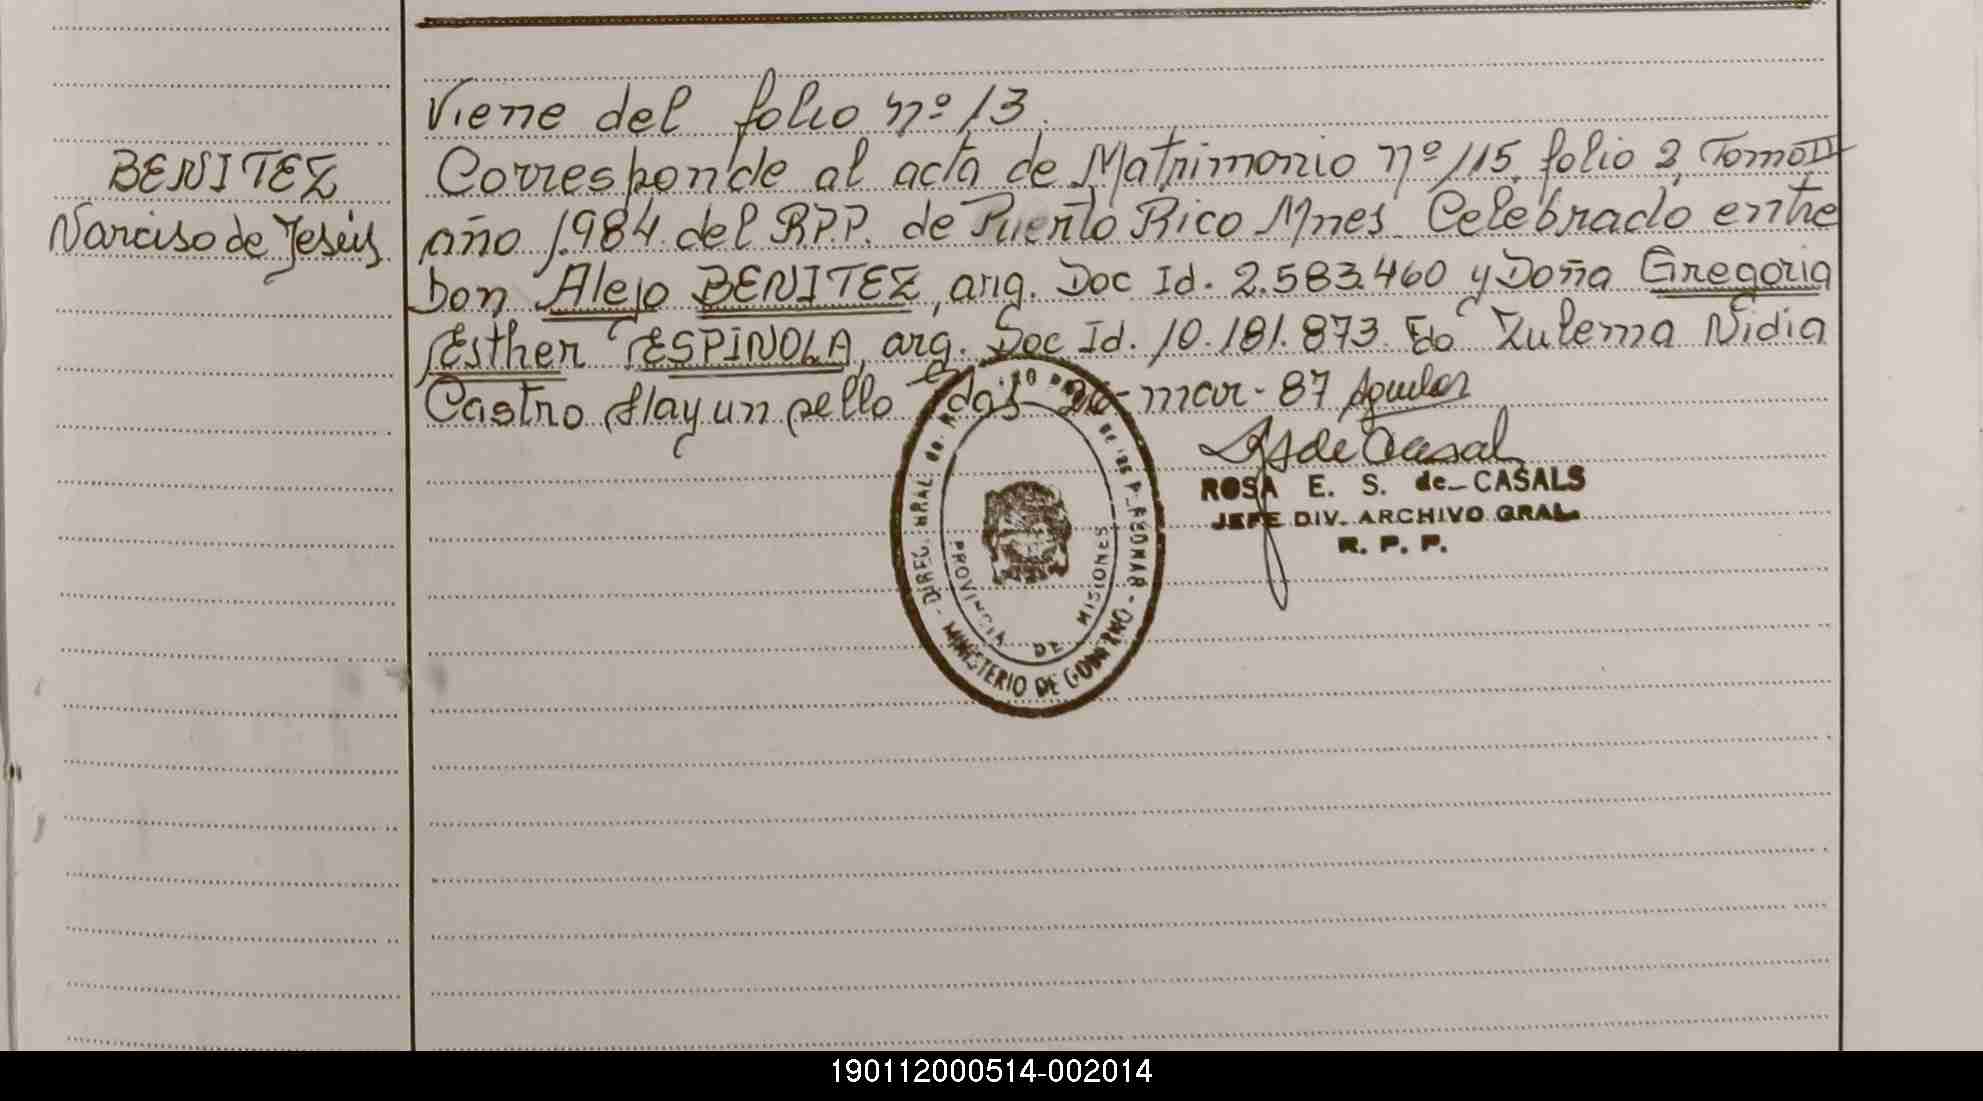 Viene del folio nº 13.
BENITEZ
Narciso de Jesús
Corresponde al acta de Matrimonio nº 115, folio 2, Tomo II
año 1.984 del R.P.P. de Puerto Rico Mnes. Celebrado entre
Don Alejo BENITEZ, arg. Doc Id. 2.583.460 y Doña Gregoria
Esther ESPINOLA, arg. Doc Id. 10.181.873. Fdo Zulema Nidia
Castro Hay un sello mar-87 Aguilar
ROSA E. S. de CASALS
JEFE DIV. ARCHIVO GRAL.
R. P. P.
PROVINCIA DE MISIONES
MINISTERIO DE GOBIERNO
190112000514-002014